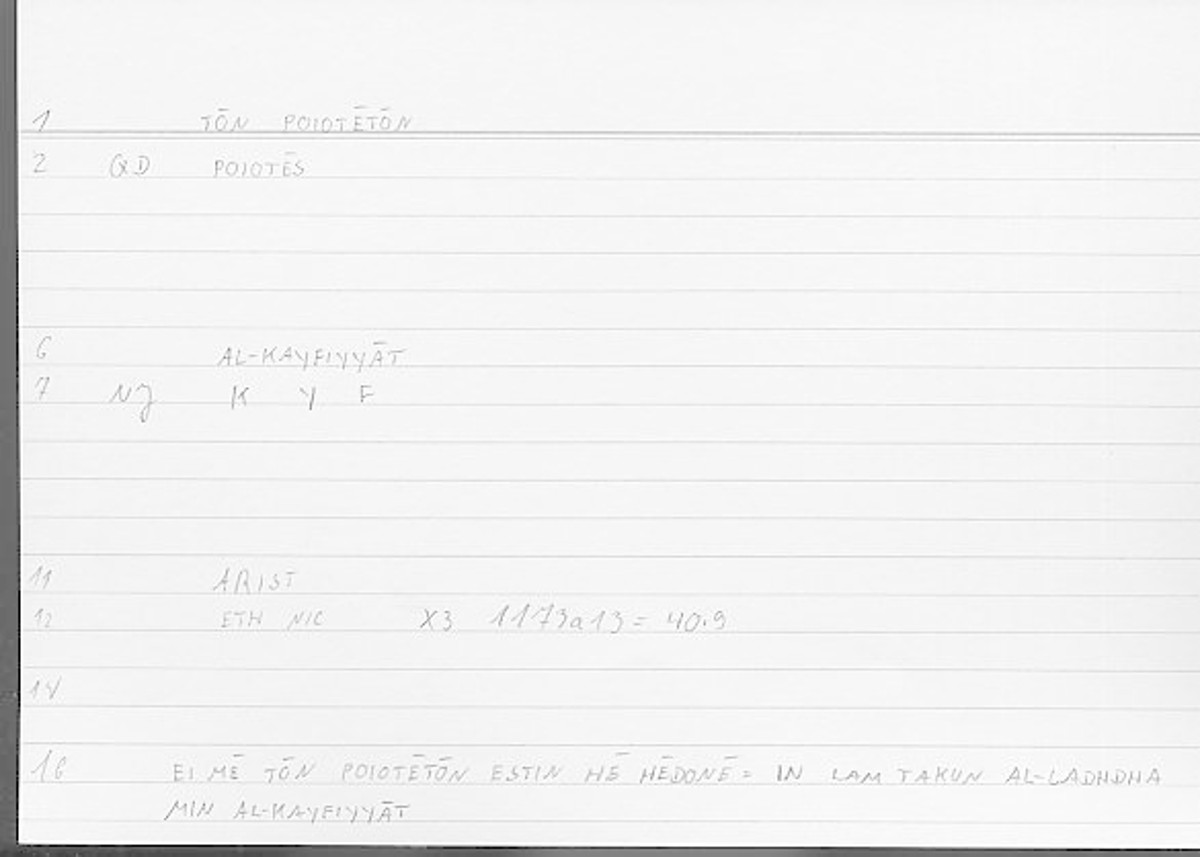 1 TŌN POIOTĒTŌN
2 QD POIOTĒS
6 AL-KAYFIYYĀT
7 NJ K Y F
11 ARIST
12 ETH NIC X3 1173a13 = 40.9
14
16 EI MĒ TŌN POIOTĒTŌN ESTIN HĒ HĒDONĒ = IN LAM TAKUN AL-LADHDHA
MIN AL-KAYFIYYĀT